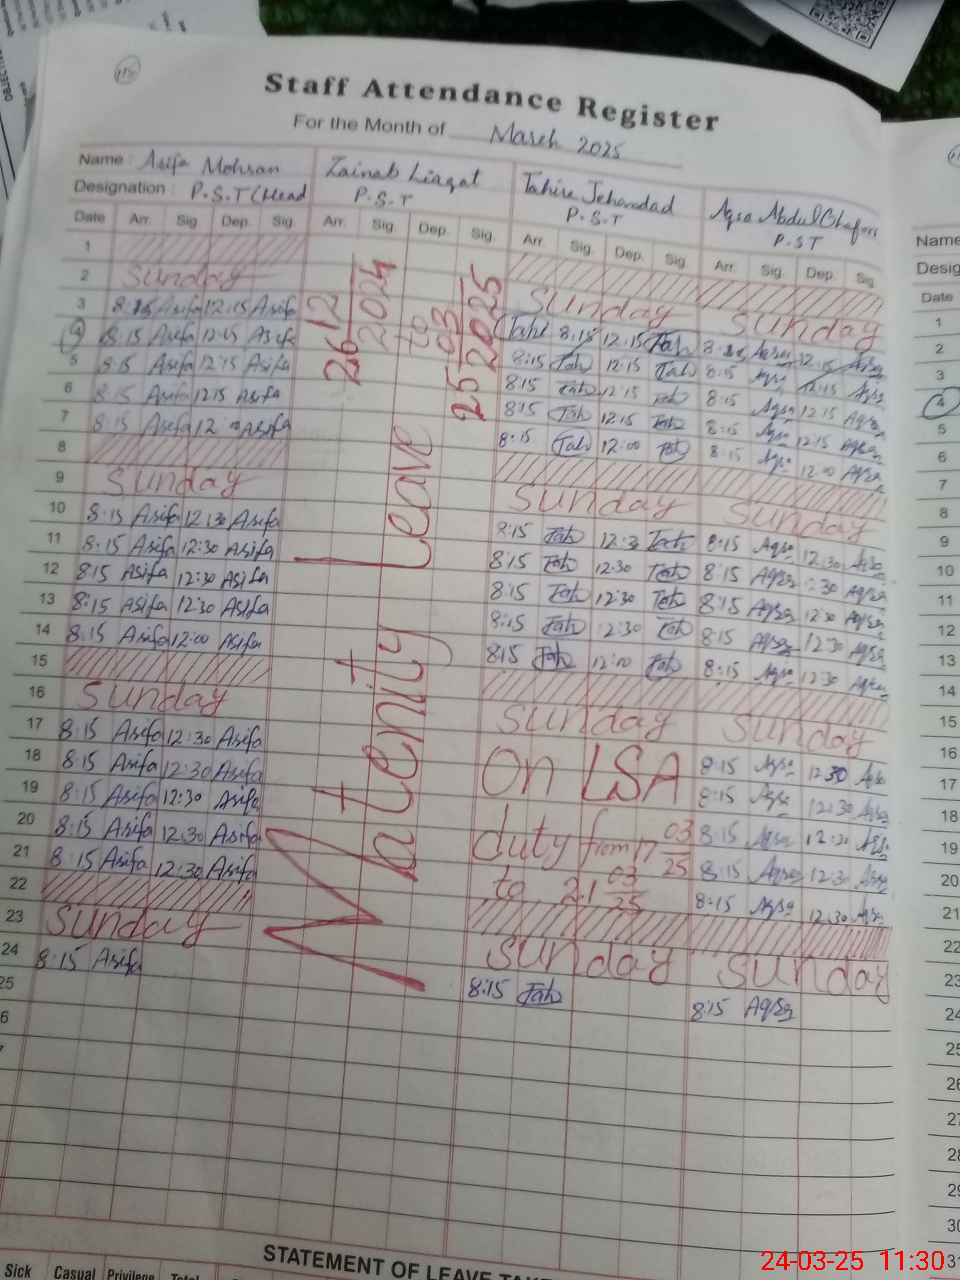 Staff Attendance Register
For the Month of March 2025
Name : Asifa Mohsan Zainab Liaqat Tahira Jehandad Aqsa Abdul Ghafoor
Designation : P.S.T (Head P.S.T P.S.T P.S.T
Date Arr. Sig. Dep. Sig. Arr. Sig. Dep. Sig. Arr. Sig. Dep. Sig. Arr. Sig. Dep. Sig.
1
2 Sunday Sunday Sunday
3 8:15 Asifa 12:15 Asifa Tah 8:15 12:15 Tah 8:15 Aqsa 12:15 Aqsa
4 8:15 Asifa 12:15 Asifa 8:15 Tah 12:15 Tah 8:15 Aqsa 12:15 Aqsa
5 8:15 Asifa 12:15 Asifa 8:15 Tah 12:15 Tah 8:15 Aqsa 12:15 Aqsa
6 8:15 Asifa 12:15 Asifa 8:15 Tah 12:15 Tah 8:15 Aqsa 12:15 Aqsa
7 8:15 Asifa 12:00 Asifa 8:15 Tah 12:00 Tah 8:15 Aqsa 12:00 Aqsa
8
9 Sunday Sunday Sunday
10 8:15 Asifa 12:30 Asifa 8:15 Tah 12:3 Tah 8:15 Aqsa 12:30 Aqsa
11 8:15 Asifa 12:30 Asifa 8:15 Tah 12:30 Tah 8:15 Aqsa :30 Aqsa
12 8:15 Asifa 12:30 Asifa 8:15 Tah 12:30 Tah 8:15 Aqsa 12:30 Aqsa
13 8:15 Asifa 12:30 Asifa 8:15 Tah 12:30 Tah 8:15 Aqsa 12:30 Aqsa
14 8:15 Asifa 12:00 Asifa 8:15 Tah 12:00 Tah 8:15 Aqsa 12:30 Aqsa
15
16 Sunday Sunday Sunday
17 8:15 Asifa 12:30 Asifa 8:15 Aqsa 12:30 Aqsa
18 8:15 Asifa 12:30 Asifa 8:15 Aqsa 12:30 Aqsa
19 8:15 Asifa 12:30 Asifa 8:15 Aqsa 12:30 Aqsa
20 8:15 Asifa 12:30 Asifa 8:15 Aqsa 12:30 Aqsa
21 8:15 Asifa 12:30 Asifa 8:15 Aqsa 12:30 Aqsa
22
23 Sunday Sunday Sunday
24 8:15 Asifa 8:15 Tah 8:15 Aqsa
25
6
Maternity Leave
26 12 2024 to 25 03 2025
On LSA
duty from 17 03 25
to 21 03 25
Name
Desig
Date
1
2
3
4
5
6
7
8
9
10
11
12
13
14
15
16
17
18
19
20
21
22
23
24
25
26
27
28
29
30
31
STATEMENT OF LEAVE TAKE
Sick Casual Privilege Total
24-03-25 11:30